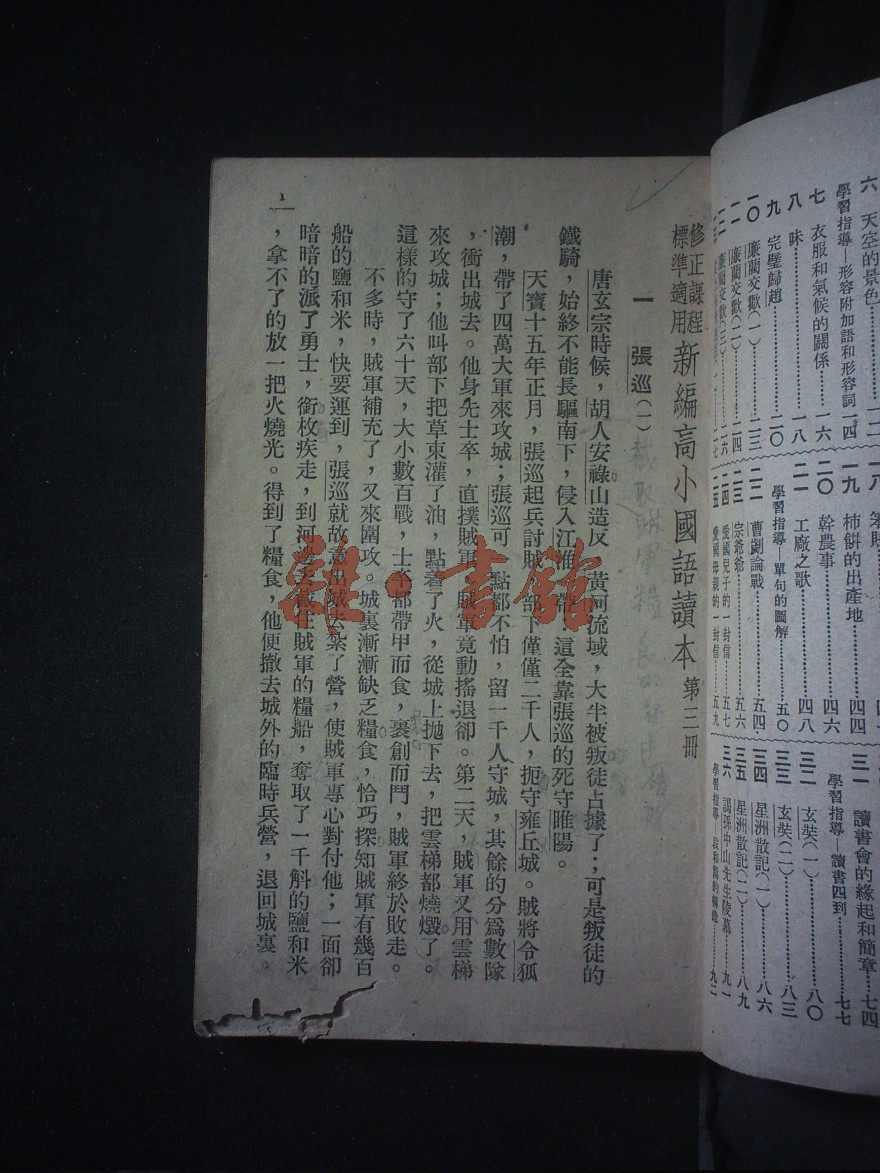 六 天空的景色……一二
學習指導—形容附加語和形容詞 一四
七 衣服和氣候的關係……一六
八 昧……一八
九 完璧歸趙……二〇
一〇 廉藺交歡(一)……二三
一一 廉藺交歡(二)……二四
一九 柿餅的出產地……四四
二〇 幹農事……四六
二一 工廠之歌……四八
學習指導—單句的圖解……五〇
二二 曹劌論戰……五四
二三 宗爺爺……五六
二四 愛國兒子的一封信……五七
二五 愛國母親的一封信……五九
三一 讀書會的緣起和簡章……七四
學習指導—讀書四到……七七
三二 玄奘(一)……八〇
三三 玄奘(二)……八三
三四 星洲散記(一)……八六
三五 星洲散記(二)……八九
三六 謁孫中山先生陵墓……九一
修正課程標準適用 新編高小國語讀本 第三冊
一 張巡(一)
唐玄宗時候,胡人安祿山造反,黃河流域,大半被叛徒占據了;可是叛徒的
鐵騎,始終不能長驅南下,侵入江淮一帶,這全靠張巡的死守睢陽。
天寶十五年正月,張巡起兵討賊,部下僅僅二千人,扼守雍丘城。賊將令狐
潮,帶了四萬大軍來攻城;張巡可一點都不怕,留一千人守城,其餘的分爲數隊
,衝出城去。他身先士卒,直撲賊軍,賊軍竟動搖退卻。第二天,賊軍又用雲梯
來攻城;他叫部下把草束灌了油,點着了火,從城上拋下去,把雲梯都燒燬了。
這樣的守了六十天,大小數百戰,士卒都帶甲而食,裹創而鬥,賊軍終於敗走。
不多時,賊軍補充了,又來圍攻。城裏漸漸缺乏糧食,恰巧探知賊軍有幾百
船的鹽和米,快要運到,張巡就故意出城去紮了營,使賊軍專心對付他;一面卻
暗暗的派了勇士,銜枚疾走,到河邊去截住賊軍的糧船,奪取了一千斛的鹽和米
,拿不了的放一把火燒光。得到了糧食,他便撤去城外的臨時兵營,退回城裏。
一